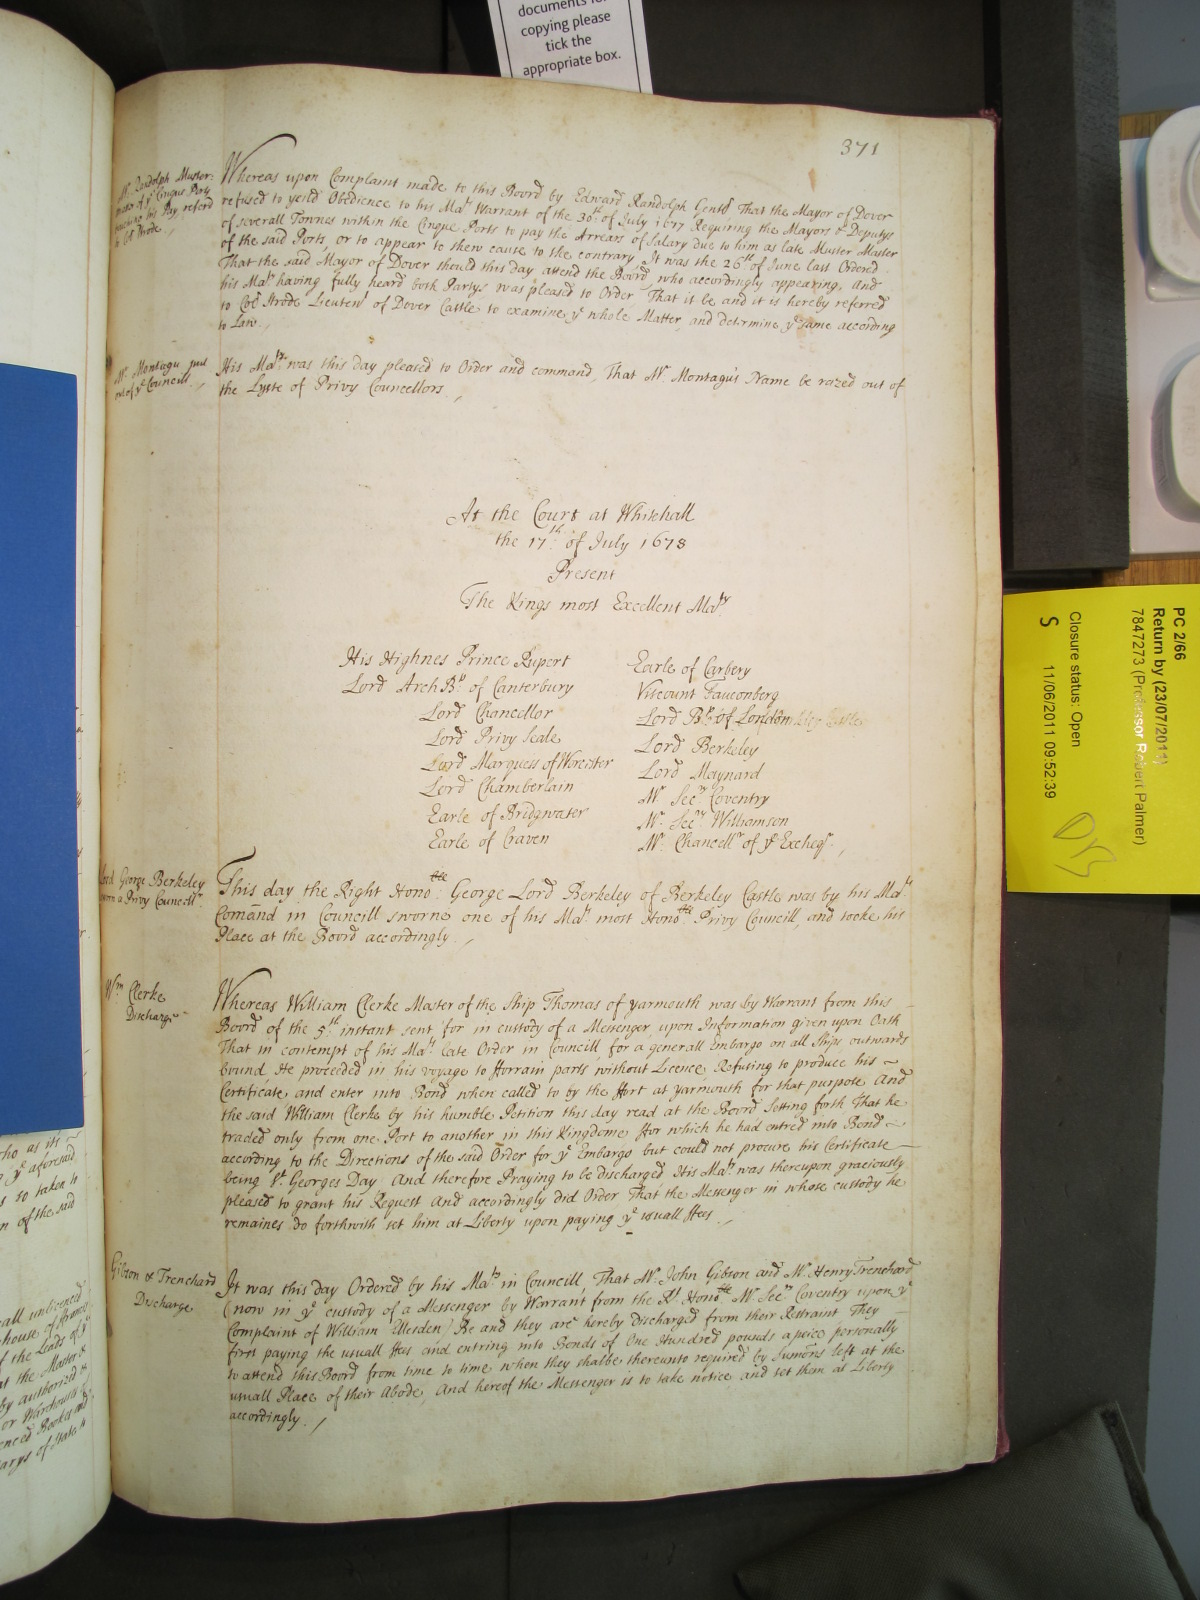 documents for
copying please
tick the
appropriate box.
371
Mr. Randolph Muster-
master of ye Cinque Ports
touching his Pay, referd
to Col Strode.
Whereas upon Complaint made to this Board by Edward Randolph Gentd That the Mayor of Dover
refused to yeild Obedience to his Mats Warrant of the 30th of July 1677 Requiring the Mayors & Deputys
of severall Townes within the Cinque Ports to pay the Arrears of Salary due to him as late Muster Master
of the said Ports, or to appear to shew cause to the contrary It was the 26th of June last Ordered
That the said Mayor of Dover should this day attend the Board, who accordingly appearing, And
his Maty having fully heard both Partys was pleased to Order That it be and it is hereby referred
to Col Strode Lieutent of Dover Castle to examine ye whole Matter, and determine ye same according
to Law.
Mr. Montagu put
out of ye Councill.
His Maty was this day pleased to Order and command, That Mr. Montagu's Name be razed out of
the Lyste of Privy Councellors.
At the Court at Whitehall
the 17th of July 1678
Present
The Kings most Excellent Maty
His Highnes Prince Rupert
Lord ArchBp of Canterbury
Lord Chancellor
Lord Privy Seale
Lord Marquess of Worcester
Lord Chamberlain
Earle of Bridgwater
Earle of Craven
Earle of Carbery
Viscount Fauconberg
Lord Bp of London
Lord Berkeley
Lord Maynard
Mr. Secry Coventry
Mr. Secry Williamson
Mr. Chancellr of ye Excheqr.
Lord George Berkeley
sworn a Privy Councellr
This day the Right Honoble George Lord Berkeley of Berkeley Castle was by his Mats
Comand in Councill sworne one of his Mats most Honoble Privy Councill, and tooke his
Place at the Board accordingly.
Wm Clerke
Discharge
Whereas William Clerke Master of the Ship Thomas of yarmouth was by Warrant from this
Board of the 5th instant sent for in custody of a Messenger upon Information given upon Oath
That in contempt of his Mats late Order in Councill for a generall Embargo on all Ships outwards
bound, He proceeded in his voyage to fforrain parts without Licence, Refusing to produce his
Certificate, and enter into Bond when called to by the ffort at yarmouth for that purpose And
the said William Clerke by his humble Petition this day read at the Board Setting forth That he
traded only from one Port to another in this Kingdome ffor which he had entred into Bond
according to the Directions of the said Order for ye Embargo but could not procure his Certificate
being St Georges Day And therefore Praying to be discharged, His Maty was thereupon graciously
pleased to grant his Request And accordingly did Order That the Messenger in whose custody he
remaines do forthwith set him at Liberty upon paying ye usuall ffees.
Gibson & Trenchard
Discharge
It was this day Ordered by his Maty in Councill That Mr. John Gibson and Mr. Henry Trenchard
(now in ye custody of a Messenger by Warrant from the Rt Honoble Mr. Secry Coventry upon ye
Complaint of William) Be and they are hereby Discharged from their Restraint They
first paying the usuall ffees and entring into Bonds of One Hundred pounds a peice personally
to attend this Board from time to time, when they shalbe thereunto required by Sumons left at the
usuall Place of their Abode, And hereof the Messenger is to take notice and set them at Liberty
accordingly.
who as its
ye aforesaid
s to taken to
n of the said
all unlicenced
house of
f the Leads of ye
at the Master &
by authorized
or Warehouse
enced Books and
arys of State
PC 2/66
Return by (23/07/2011)
7847273 (Professor Robert Palmer)
Closure status: Open
S 11/06/2011 09:52:39